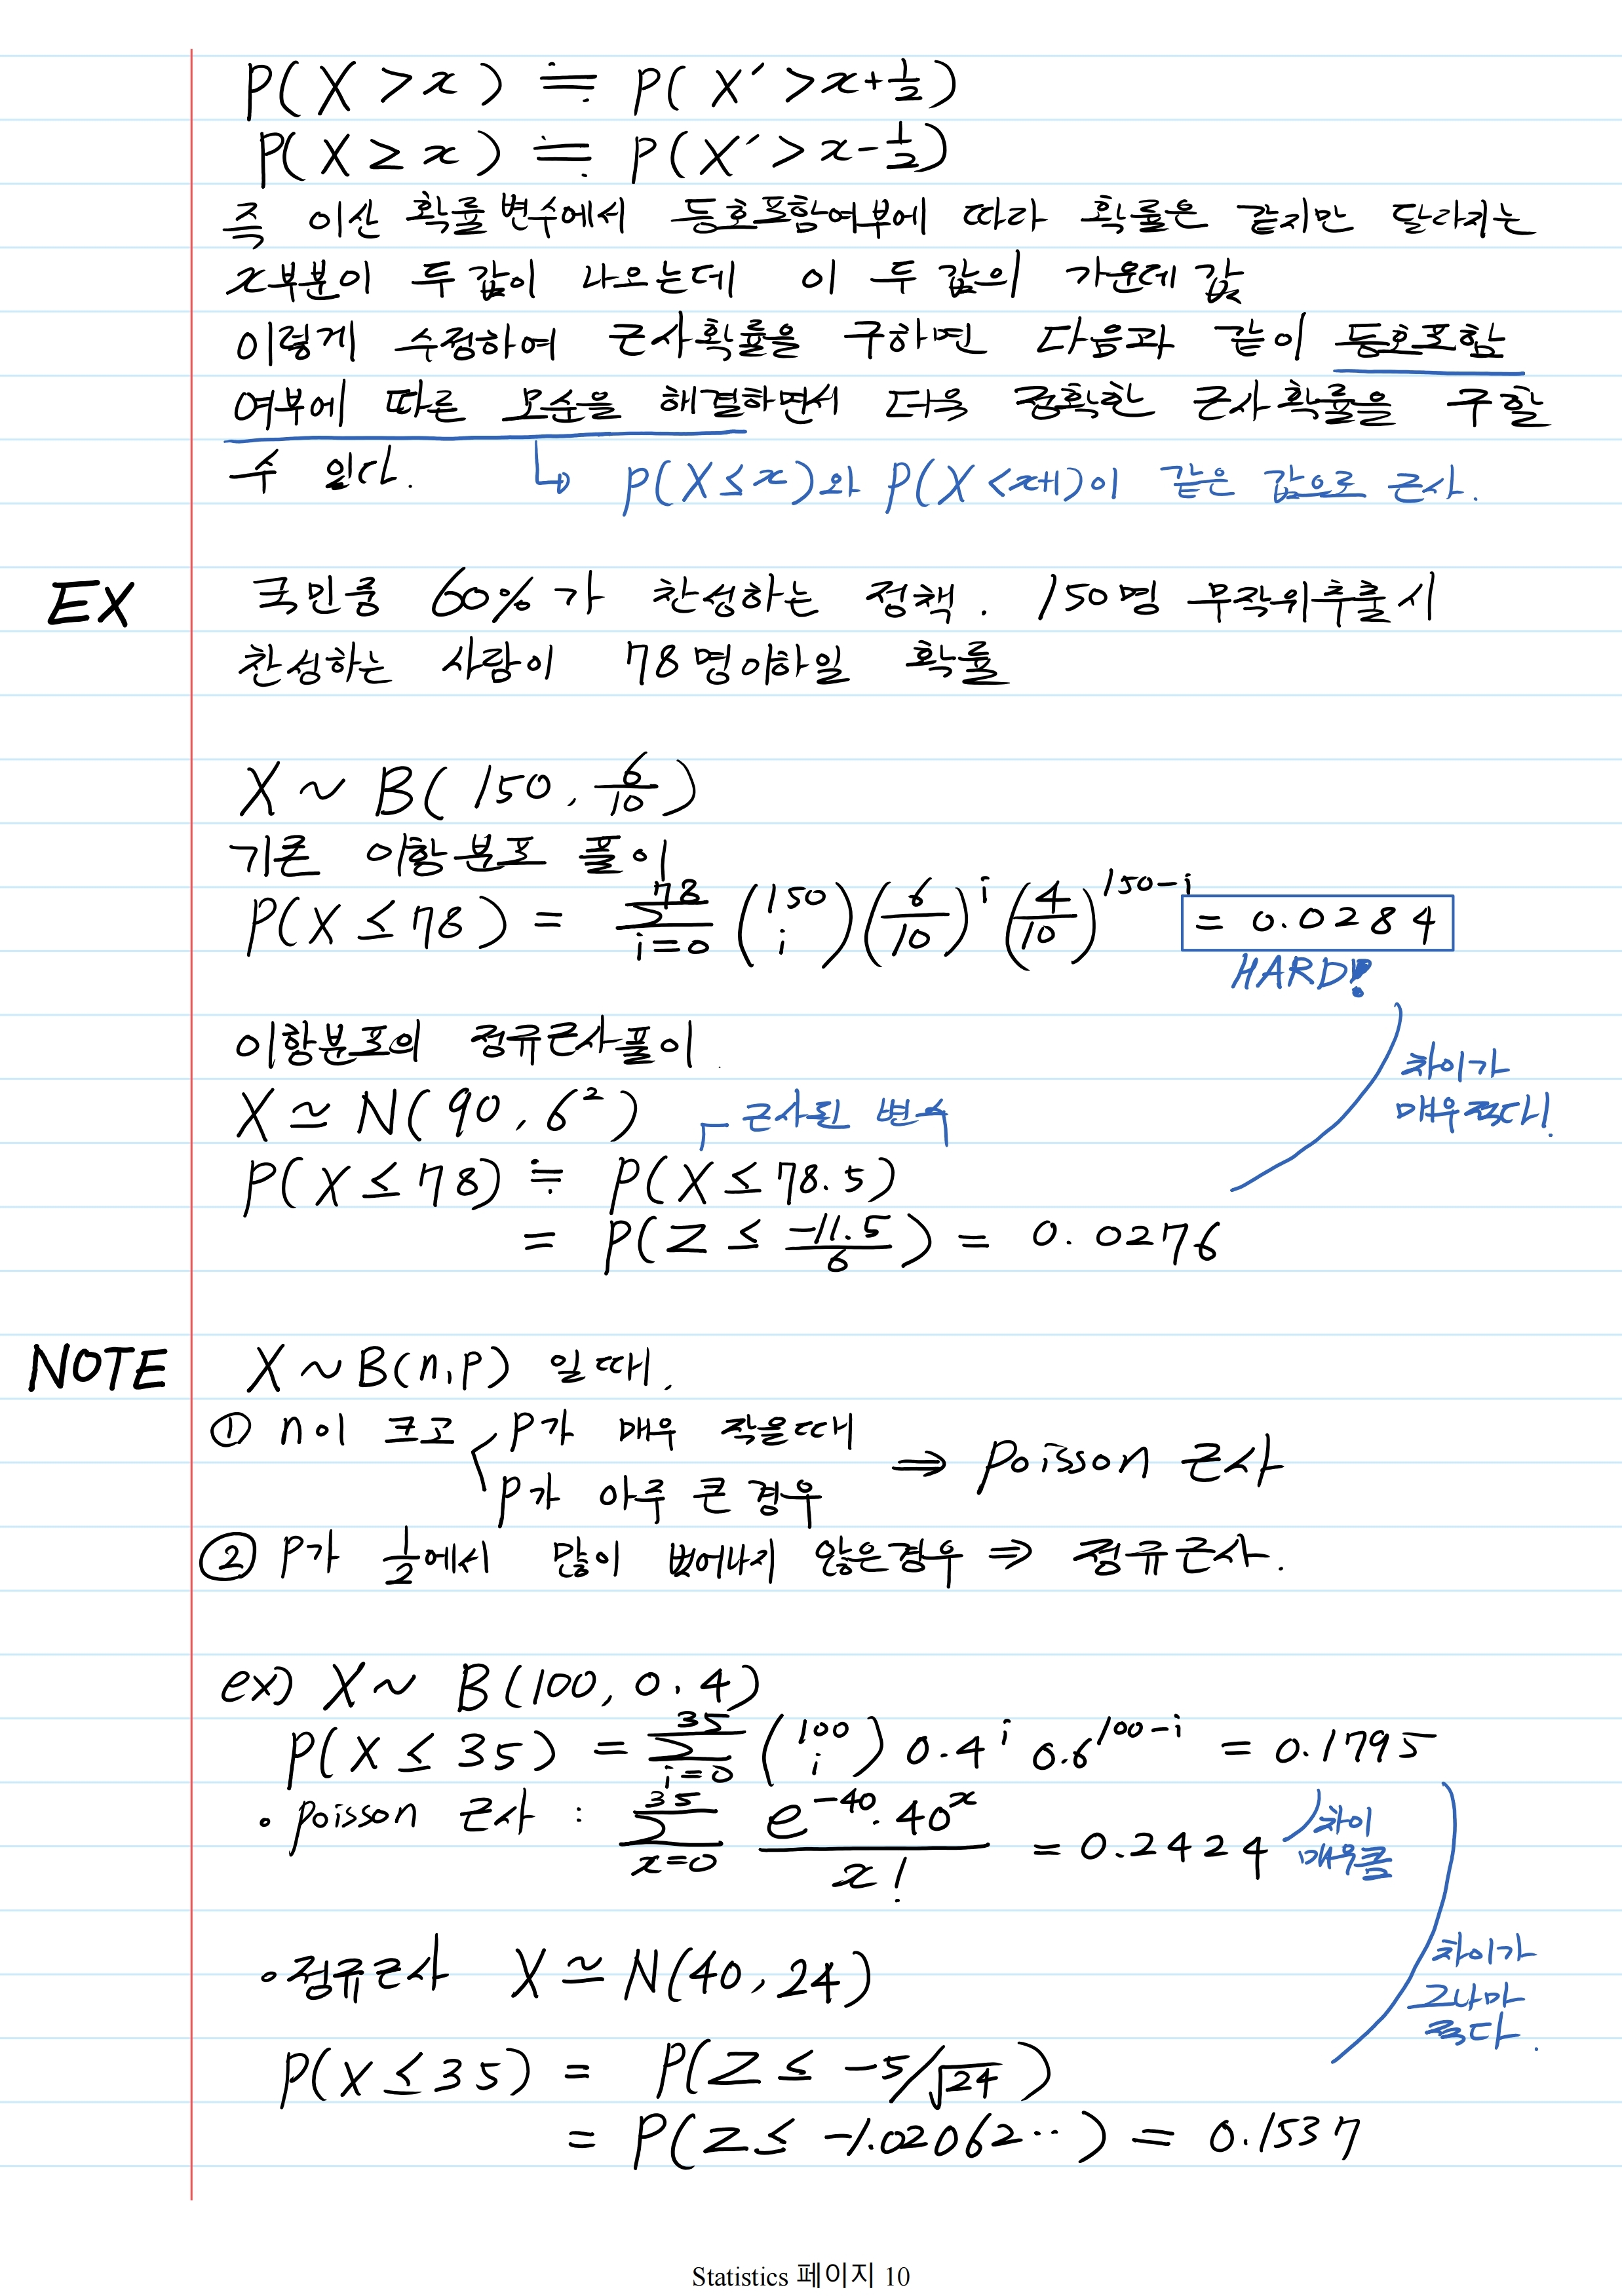 P(X > x) ≒ P(X′ > x+1/2)
P(X ≥ x) ≒ P(X′ > x-1/2)
즉 이산 확률변수에서 등호포함여부에 따라 확률은 같지만 달라지는
x부분이 두 값이 나오는데 이 두 값의 가운데 값
이렇게 수정하여 근사확률을 구하면 다음과 같이 등호포함
여부에 따른 모순을 해결하면서 더욱 정확한 근사확률을 구할
수 있다.
↳ P(X ≤ x)와 P(X < x+1)이 같은 값으로 근사.
EX 국민중 60%가 찬성하는 정책. 150명 무작위추출시
찬성하는 사람이 78명이하일 확률
X ~ B(150, 6/10)
기존 이항분포 풀이
P(X ≤ 78) = Σ_{i=0}^{78} (150 i)(6/10)^i (4/10)^{150-i} = 0.0284
HARD!
이항분포의 정규근사풀이
차이가
매우적다!
X ≃ N(90, 6²)
근사된 변수
P(X ≤ 78) ≒ P(X ≤ 78.5)
= P(Z ≤ -11.5/6) = 0.0276
NOTE X ~ B(n,p) 일때.
① n이 크고 p가 매우 작을때
p가 아주 큰 경우
⇒ Poisson 근사
② p가 1/2에서 많이 벗어나지 않은경우 ⇒ 정규근사.
ex) X ~ B(100, 0.4)
P(X ≤ 35) = Σ_{i=0}^{35} (100 i) 0.4^i 0.6^{100-i} = 0.1795
• Poisson 근사 : Σ_{x=0}^{35} e^{-40}·40^x / x! = 0.2424
차이
매우큼
• 정규근사 X ≃ N(40, 24)
차이가
그나마
적다.
P(X ≤ 35) = P(Z ≤ -5/√24)
= P(Z ≤ -1.02062··) = 0.1537
Statistics 페이지 10